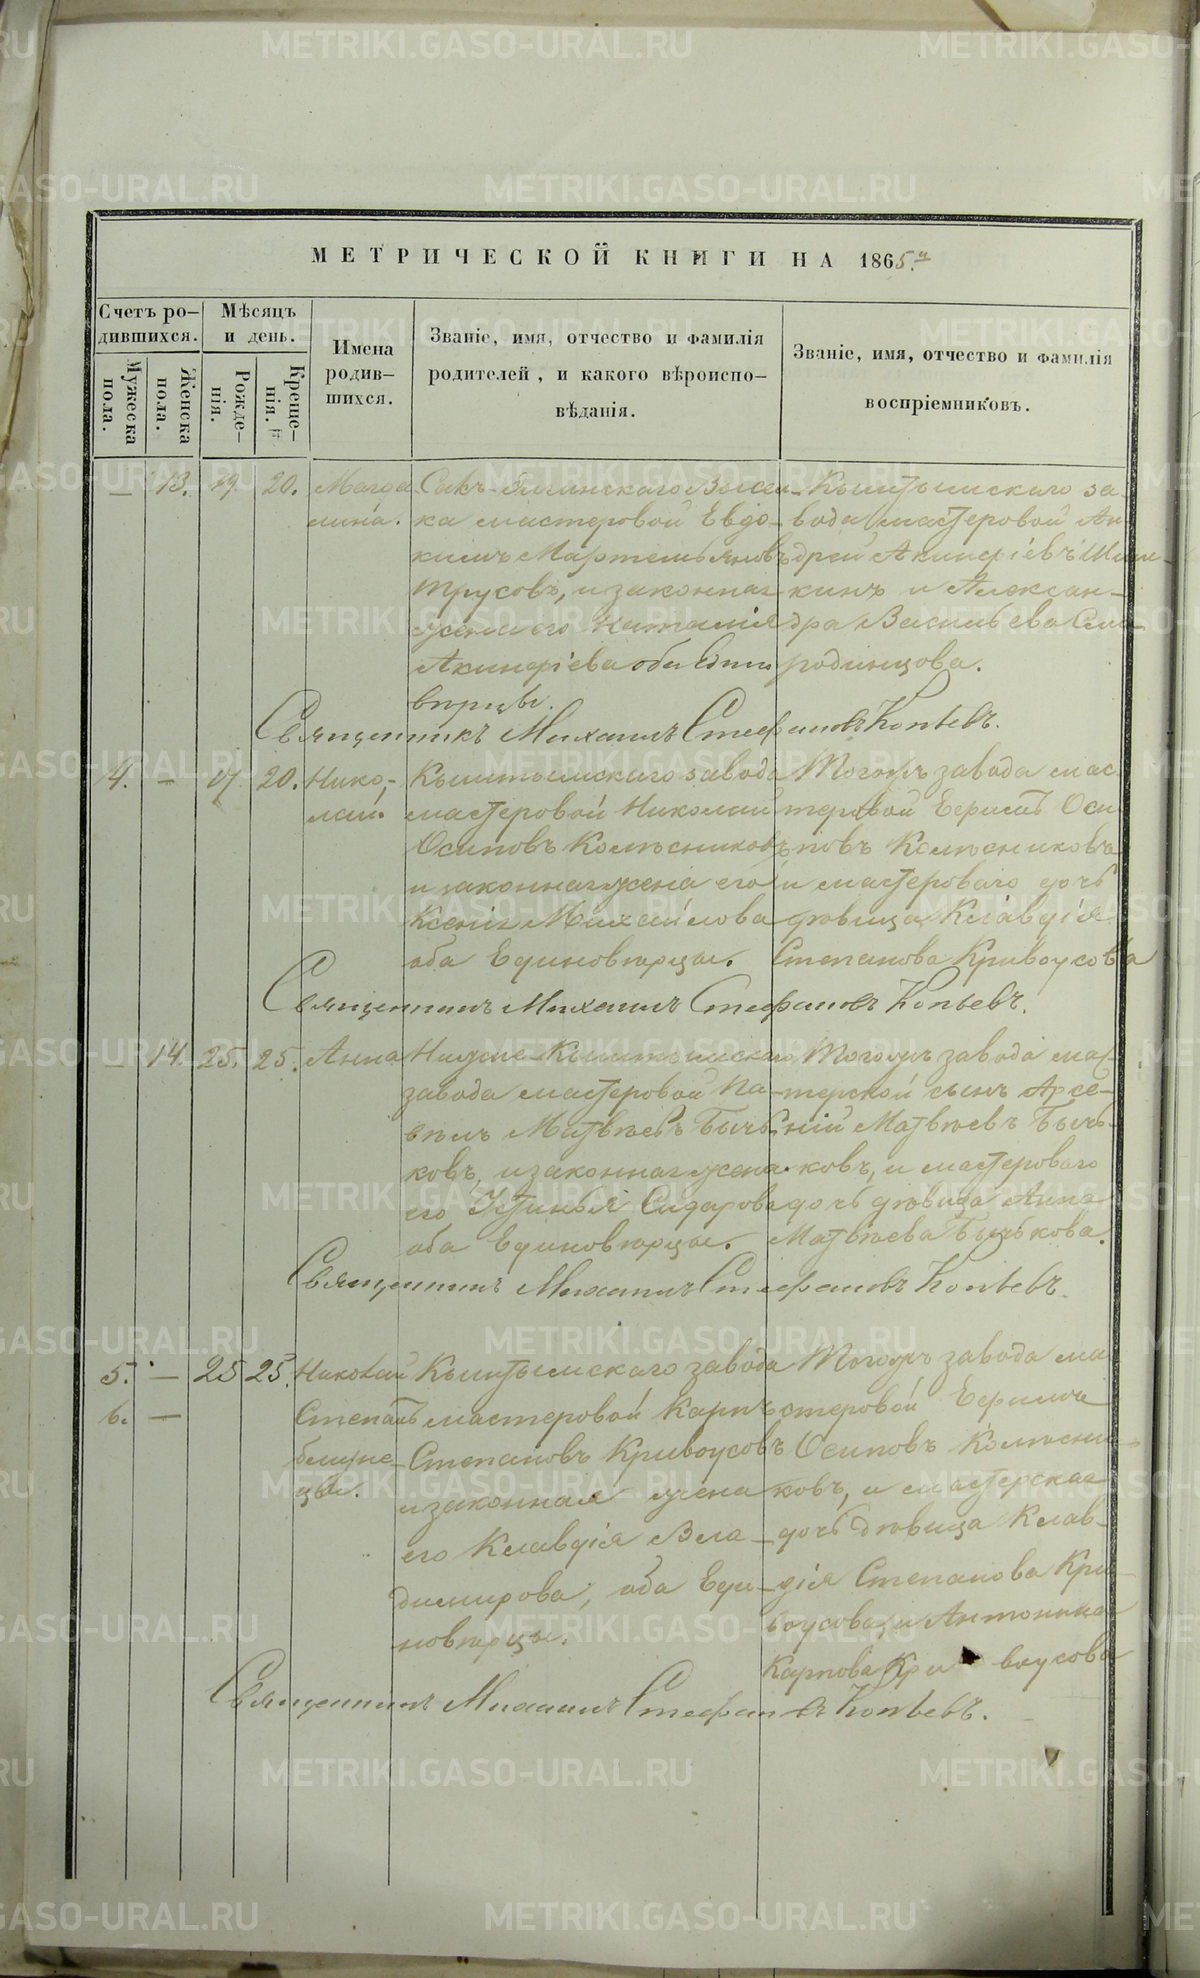 МЕТРИЧЕСКОЙ КНИГИ НА 1865.й
Счетъ ро-
дившихся.
Мѣсяцъ
и день.
Имена
родив-
шихся.
Званіе, имя, отчество и фамилія
родителей, и какого вѣроиспо-
вѣданія.
Званіе, имя, отчество и фамилія
воспріемниковъ.
Мужеска
пола.
Женска
пола.
Рожде-
нія.
Креще-
нія.
— 13. 19. 20. Магда
лина.
Сакъ-Елгинскаго Высел-
ка мастеровой Евдо-
кимъ Мартемьяновъ
Трусовъ, и законная
жена его Наталія
Акинфіева оба Едино
вѣрцы.
Кыштымскаго за
вода мастеровой Ан
дрей Акинфіевъ
кинъ и Алексан-
дра Васильева Ско
родинцова.
Священникъ Михаилъ Стефановъ Копьевъ.
4. — 19 20. Нико-
лай.
Кыштымскаго завода
мастеровой Николай
Осиповъ Колѣсниковъ
и законная жена его
Ксенія Михайлова
оба Единовѣрцы.
Тогожъ завода мас
теровой Ефимъ Оси
повъ Колѣсниковъ
и мастероваго дочь
дѣвица Клавдія
Степанова Кривоусова
Священникъ Михаилъ Стефановъ Копьевъ.
— 14. 25. 25. Анна
Нижне-Кыштымскаго
завода мастеровой Па-
велъ Матвѣевъ Бычь
ковъ, и законная жена
его Устинья Сидорова
оба Единовѣрцы.
Тогожъ завода мас
терской сынъ Арсе-
ній Матвѣевъ Бычь-
ковъ, и мастероваго
дочь дѣвица Анна
Матвѣева Бычькова.
Священникъ Михаилъ Стефановъ Копьевъ.
5. — 25 25. Николай
6. — Степанъ
близне-
цы.
Кыштымскаго завода
мастеровой Карпъ
Степановъ Кривоусовъ
и законная жена
его Клавдія Вла-
димирова, оба Еди-
новѣрцы.
Тогожъ завода ма
стеровой Ефимъ
Осиповъ Колѣсни-
ковъ, и мастерская
дочь дѣвица Клав-
дія Степанова Кри-
воусова, и Антонина
Карпова Кривоусова
Священникъ Михаилъ Стефановъ Копьевъ.
METRIKI.GASO-URAL.RU